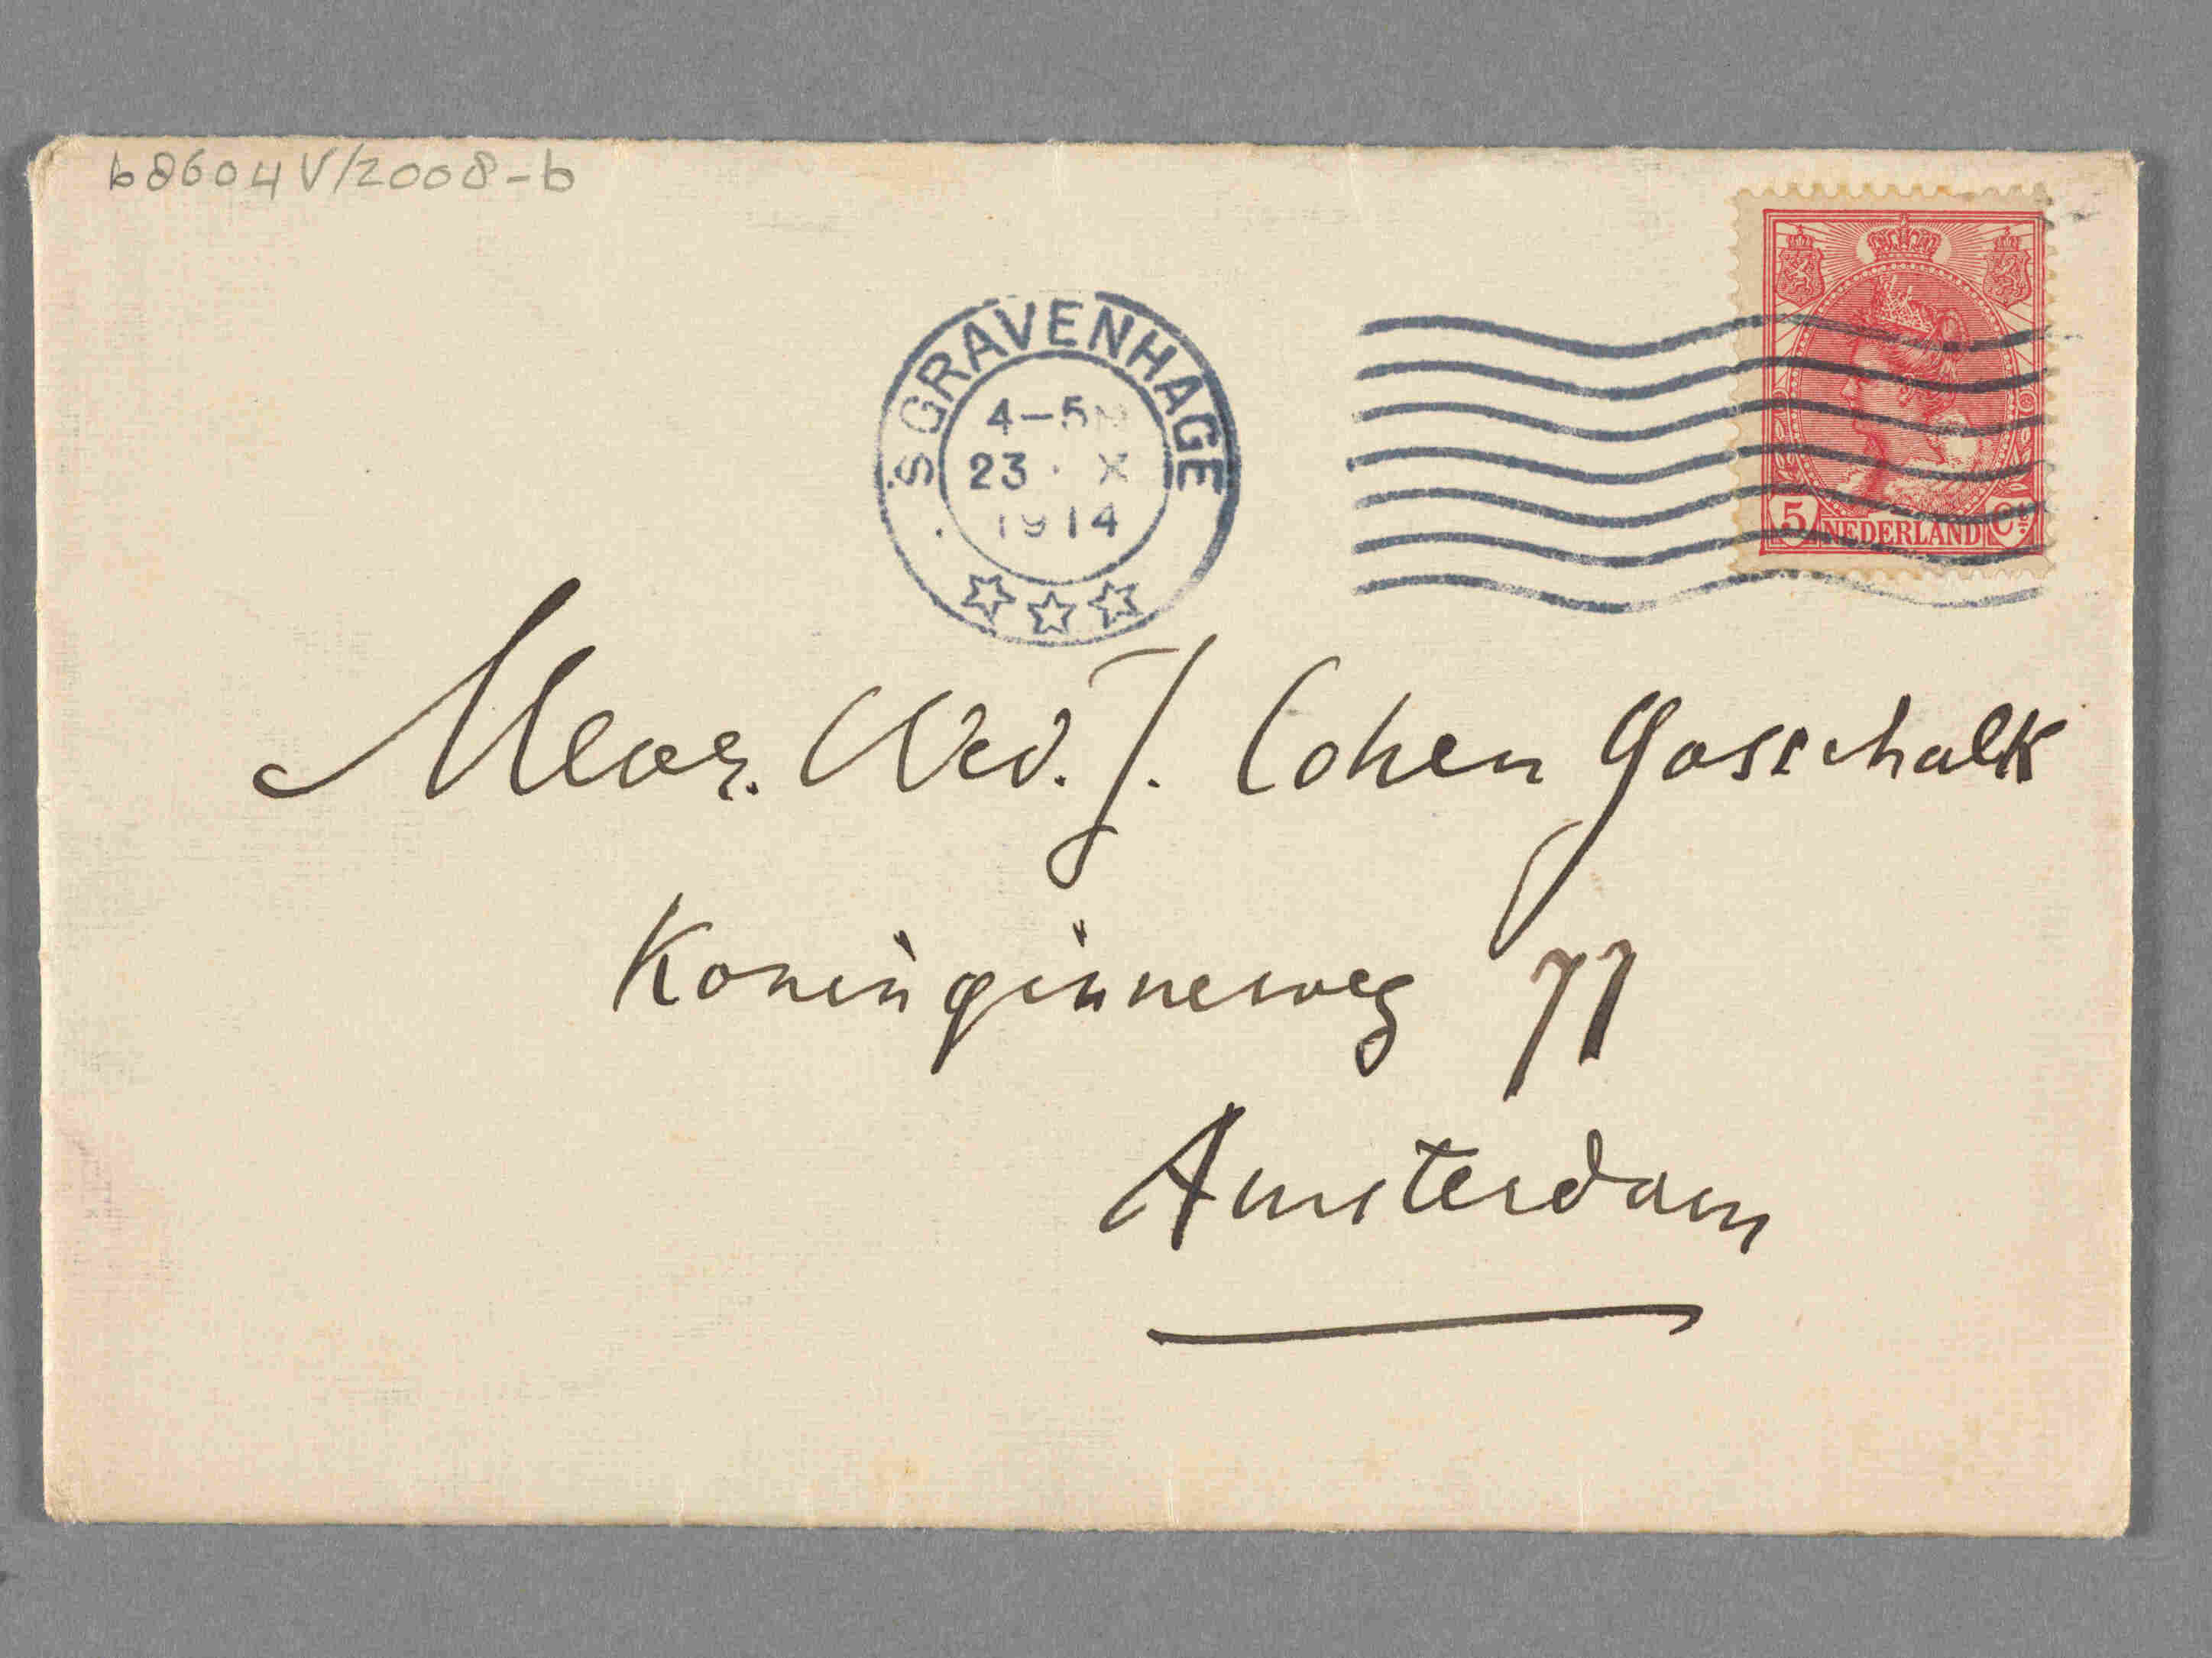 b8604 V/2008-b
'SGRAVENHAGE
4-5N
23 · X
1914
5 NEDERLAND Ct
Mevr. Wed. J. Cohen Gosschalk
Koninginneweg 77
Amsterdam